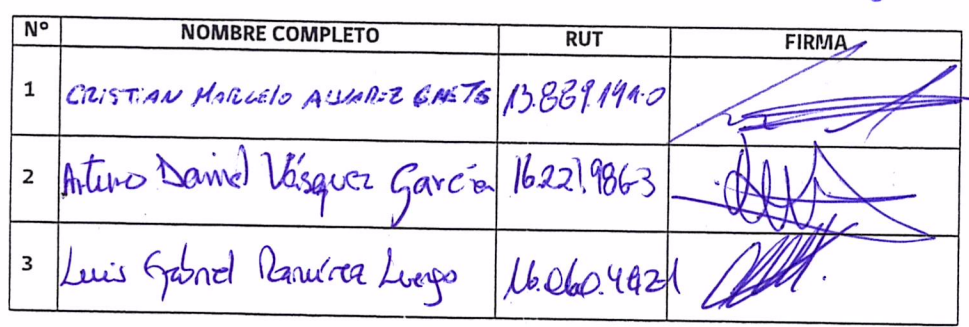 Nº NOMBRE COMPLETO RUT FIRMA
1 CRISTIAN MARCELO ALVAREZ
2 Arturo Daniel Vásquez García 16.221.986-3
3 Luis Gabriel Ramírez Luengo